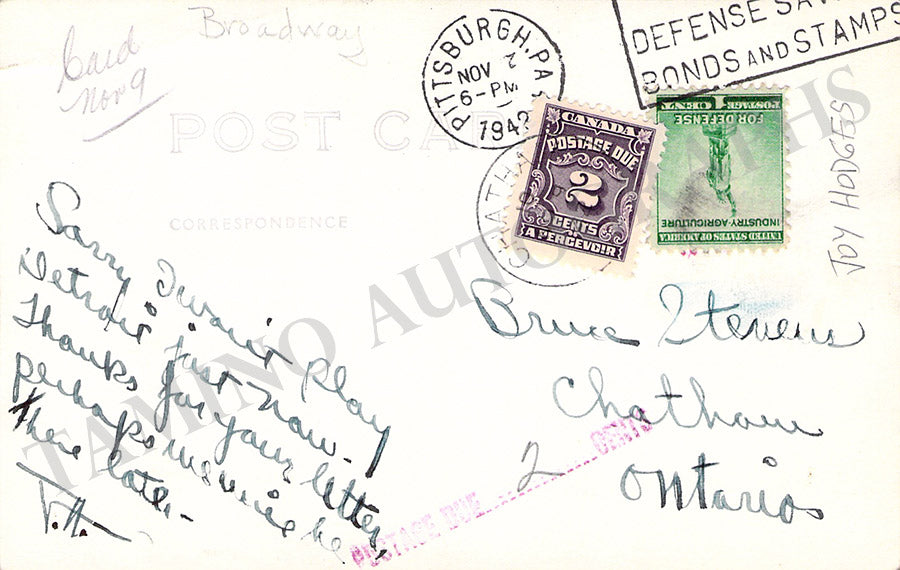 Broadway
Card
Nov 9
POST CARD
CORRESPONDENCE
PITTSBURGH, PA
NOV 7
6-PM
1942
DEFENSE SAV
BONDS AND STAMPS
CANADA
POSTAGE DUE
2
CENTS
A PERCEVOIR
CHATHA
1 CENT
POSTAGE
POSTAGE
FOR DEFENSE
INDUSTRY-AGRICULTURE
UNITED STATES OF AMERICA
JOY HODGES
Sorry I won't play
Detroit just now.
Thanks for your letter,
perhaps we will be
there later-
J.H.
Bruce Stevens
Chatham
Ontario
POSTAGE DUE 2 CENTS
TAMINO AUTOGRAPHS